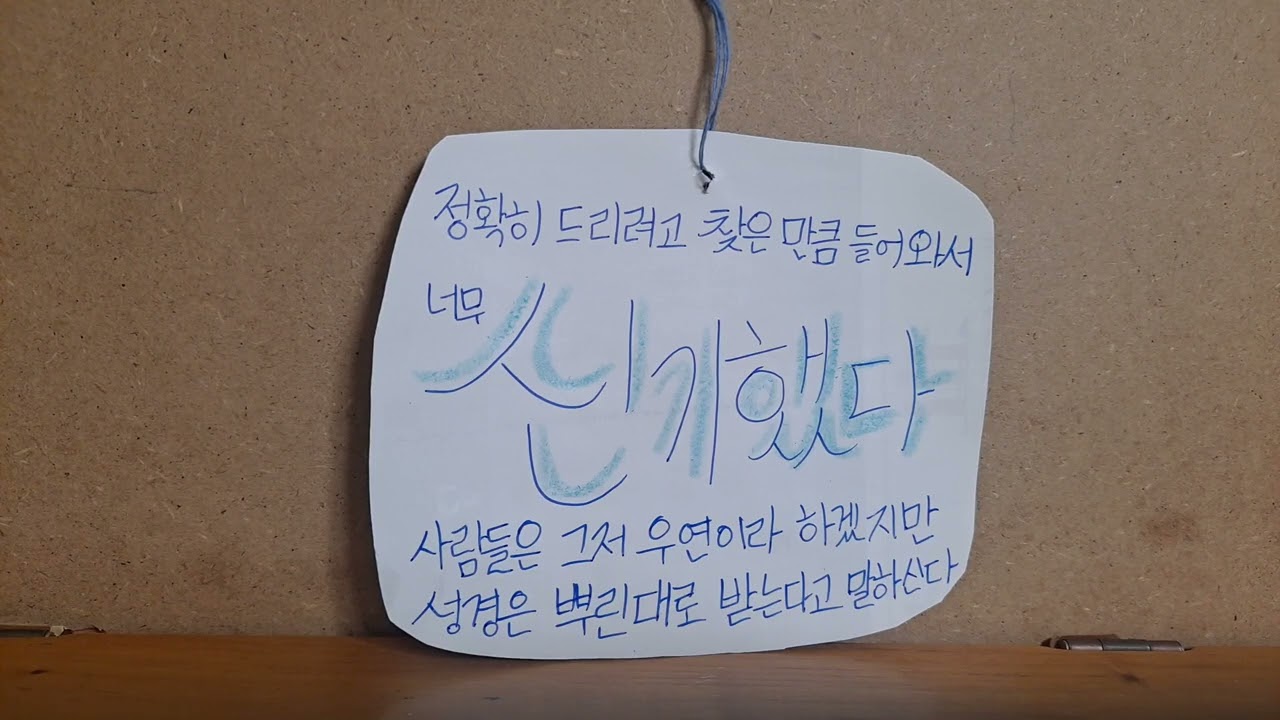 정확히 드리려고 찾은 만큼 들어와서
너무 신기했다
사람들은 그저 우연이라 하겠지만
성경은 뿌린대로 받는다고 말하신다